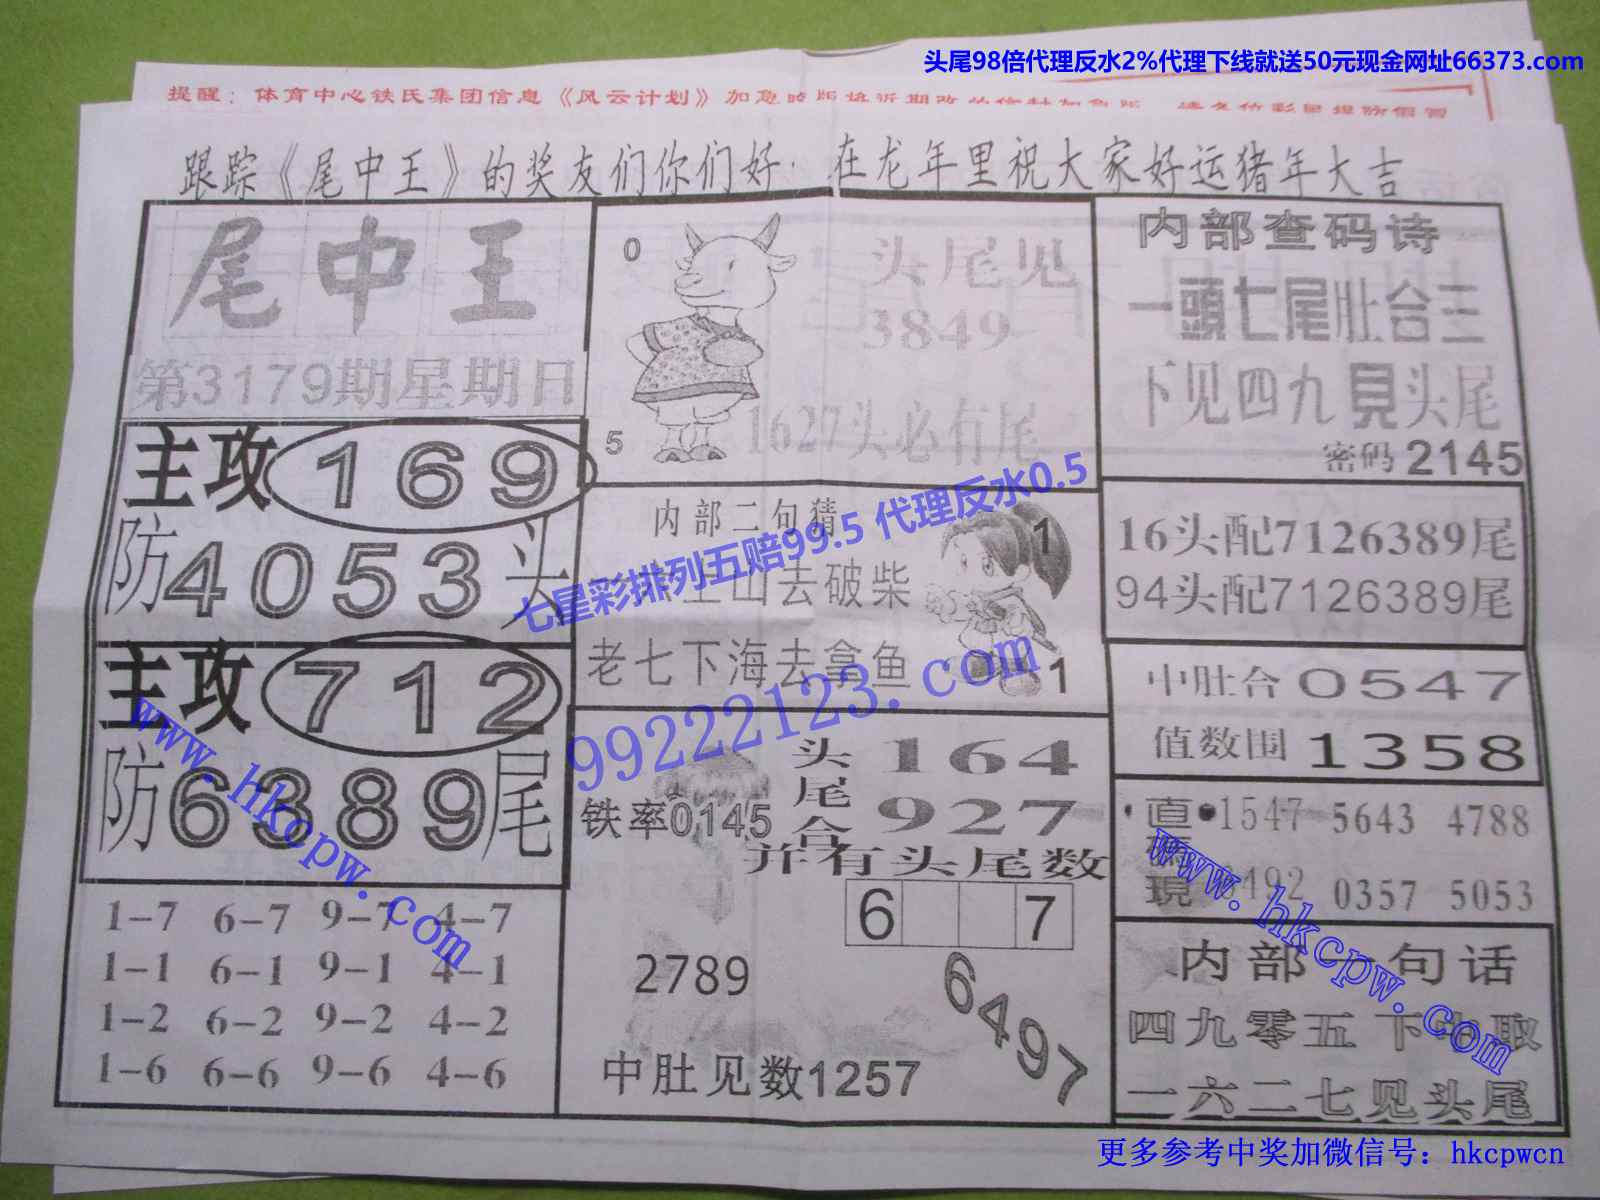 头尾98倍代理反水2%代理下线就送50元现金网址66373.com
提醒：体育中心铁氏集团信息《风云计划》加急
跟踪《尾中王》的奖友们你们好：在龙年里祝大家好运猪年大吉
尾中王
第3179期星期日
主攻169
防4053头
主攻712
防6389尾
1-7 6-7 9-7 4-7
1-1 6-1 9-1 4-1
1-2 6-2 9-2 4-2
1-6 6-6 9-6 4-6
0
5
头尾见
3849
1627头必有尾
内部二句猜
上山去破柴
老七下海去拿鱼
1
1
七星彩排列五赔99.5 代理反水0.5
99222123.com
铁率0145
头尾合
164
927
并有头尾数
6 7
2789
6497
中肚见数1257
内部查码诗
一頭七尾肚合三
下见四九見头尾
密码2145
16头配7126389尾
94头配7126389尾
中肚合0547
值数围1358
直 1547 5643 4788
現 492 0357 5053
内部一句话
四九零五下 取
一六二七见头尾
www.hkcpw.com
www.hkcpw.com
更多参考中奖加微信号：hkcpwcn